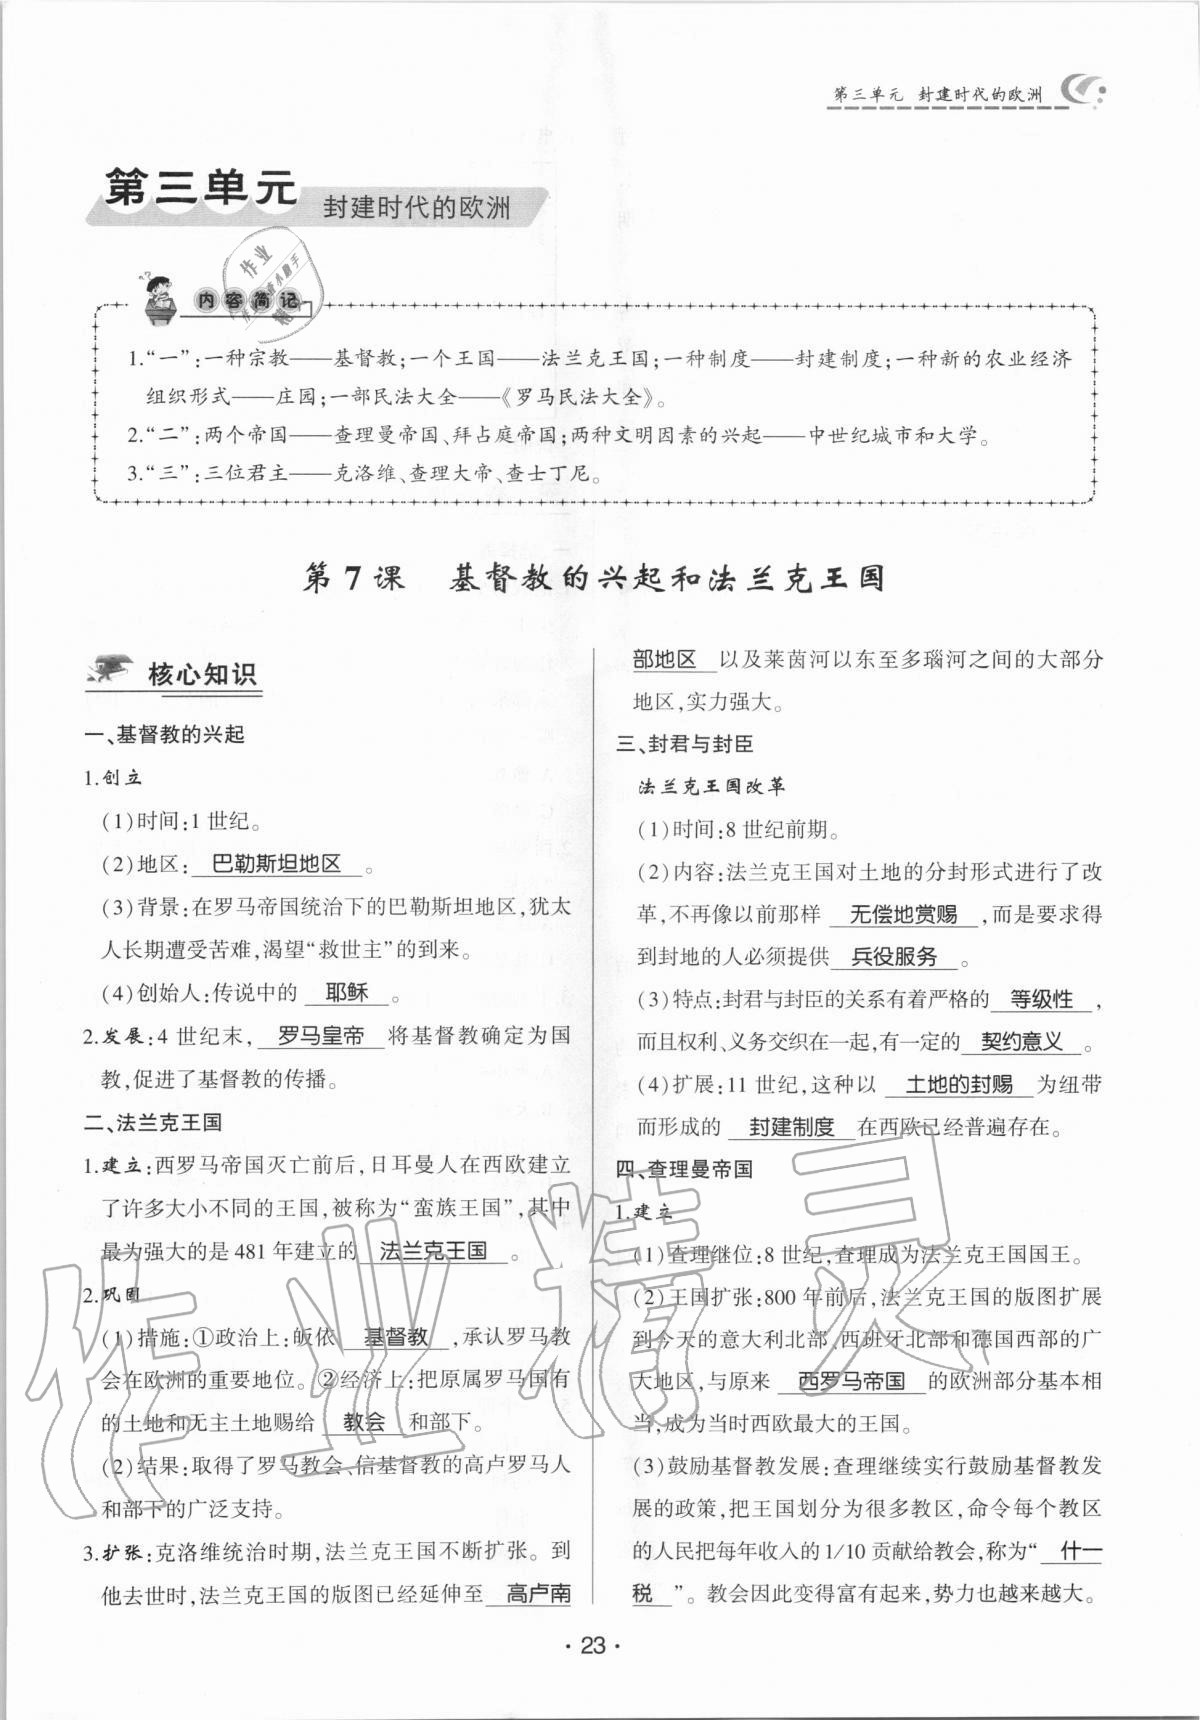 第三单元 封建时代的欧洲
第三单元 封建时代的欧洲
内容简记
1.“一”:一种宗教——基督教;一个王国——法兰克王国;一种制度——封建制度;一种新的农业经济
组织形式——庄园;一部民法大全——《罗马民法大全》。
2.“二”:两个帝国——查理曼帝国、拜占庭帝国;两种文明因素的兴起——中世纪城市和大学。
3.“三”:三位君主——克洛维、查理大帝、查士丁尼。
第7课 基督教的兴起和法兰克王国
核心知识
一、基督教的兴起
1.创立
(1)时间:1世纪。
(2)地区: 巴勒斯坦地区 。
(3)背景:在罗马帝国统治下的巴勒斯坦地区,犹太
人长期遭受苦难,渴望“救世主”的到来。
(4)创始人:传说中的 耶稣 。
2.发展:4世纪末, 罗马皇帝 将基督教确定为国
教,促进了基督教的传播。
二、法兰克王国
1.建立:西罗马帝国灭亡前后,日耳曼人在西欧建立
了许多大小不同的王国,被称为“蛮族王国”,其中
最为强大的是481年建立的 法兰克王国 。
2.巩固
(1)措施:①政治上:皈依 基督教 ,承认罗马教
会在欧洲的重要地位。②经济上:把原属罗马国有
的土地和无主土地赐给 教会 和部下。
(2)结果:取得了罗马教会、信基督教的高卢罗马人
和部下的广泛支持。
3.扩张:克洛维统治时期,法兰克王国不断扩张。到
他去世时,法兰克王国的版图已经延伸至 高卢南
部地区 以及莱茵河以东至多瑙河之间的大部分
地区,实力强大。
三、封君与封臣
法兰克王国改革
(1)时间:8世纪前期。
(2)内容:法兰克王国对土地的分封形式进行了改
革,不再像以前那样 无偿地赏赐 ,而是要求得
到封地的人必须提供 兵役服务 。
(3)特点:封君与封臣的关系有着严格的 等级性 ,
而且权利、义务交织在一起,有一定的 契约意义 。
(4)扩展:11世纪,这种以 土地的封赐 为纽带
而形成的 封建制度 在西欧已经普遍存在。
四、查理曼帝国
1.建立
(1)查理继位:8世纪,查理成为法兰克王国国王。
(2)王国扩张:800年前后,法兰克王国的版图扩展
到今天的意大利北部、西班牙北部和德国西部的广
大地区,与原来 西罗马帝国 的欧洲部分基本相
当,成为当时西欧最大的王国。
(3)鼓励基督教发展:查理继续实行鼓励基督教发
展的政策,把王国划分为很多教区,命令每个教区
的人民把每年收入的1/10贡献给教会,称为“ 什一
税 ”。教会因此变得富有起来,势力也越来越大。
·23·
作业精灵